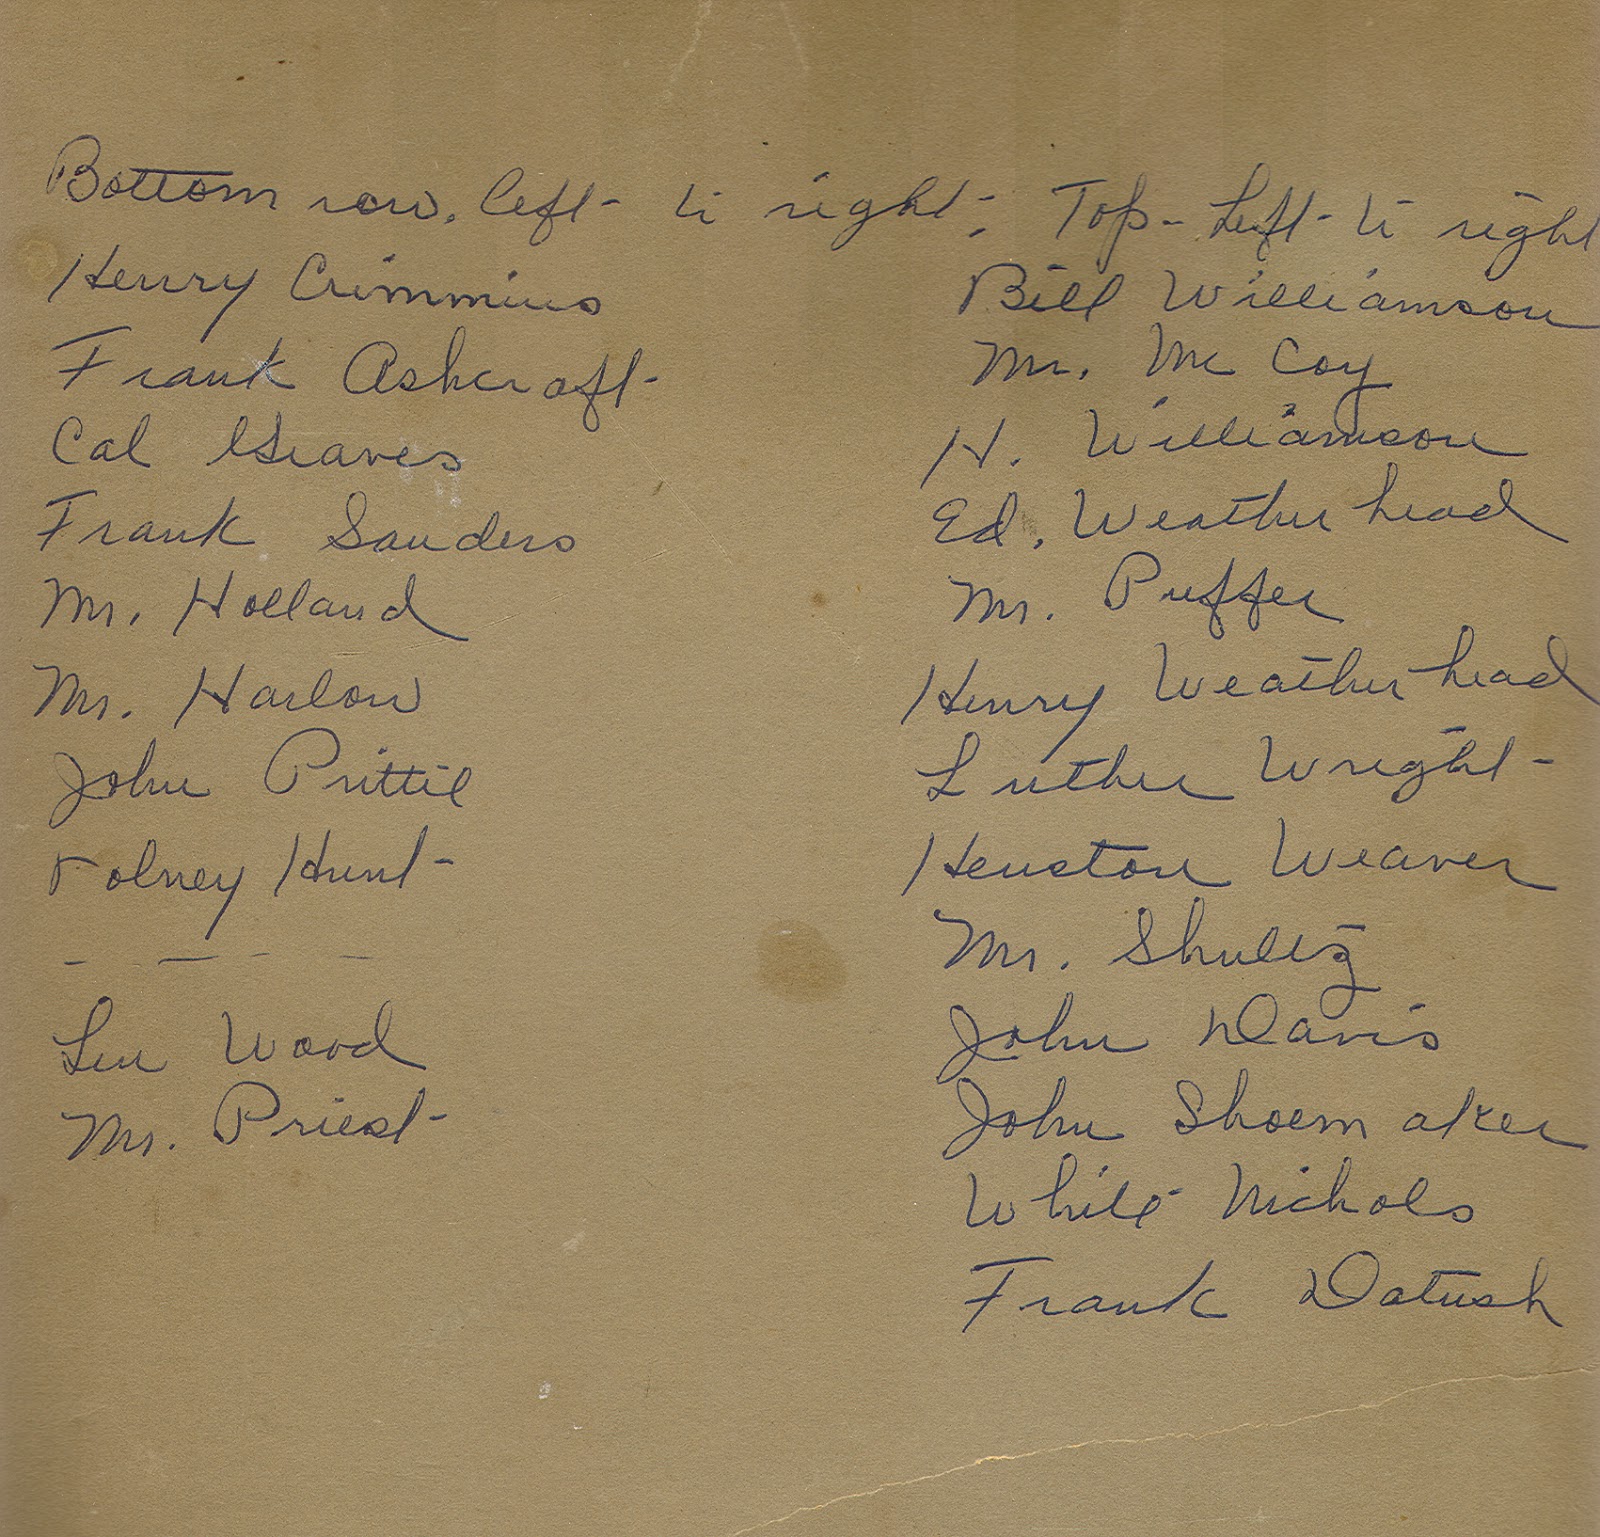 Bottom row, left to right; Top - Left to right
Henry Crimmins
Frank Ashcraft
Cal Graves
Frank Sanders
Mr. Holland
Mr. Harlow
John Prittie
Volney Hunt
- - - -
Len Wood
Mr. Priest
Bill Williamson
Mr. McCoy
H. Williamson
Ed. Weatherhead
Mr. Puffer
Henry Weatherhead
Luther Wright
Heuston Weaver
Mr. Shultz
John Davis
John Shoemaker
White Nichols
Frank Datush